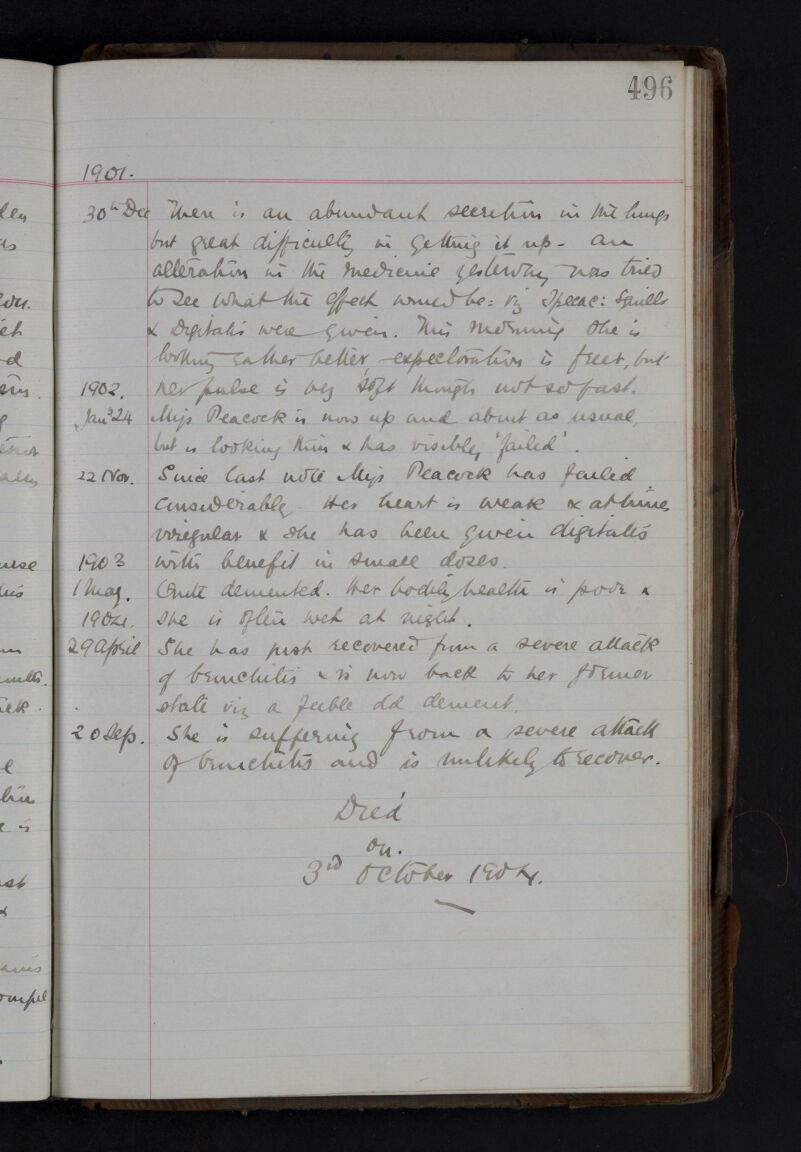 496
1901.
30th Dec There is an abundant secretion in the lungs
but great difficulty in getting it up - an
alteration in the medicine yesterday was tried
to see what the effect would be: viz Ipecac: Squills
& Digitalis were given. This morning she is
looking rather better, expectoration is freer, but
1902. her pulse is very soft though not so fast.
Jany 24 Miss Peacock is now up and about as usual,
but is looking thin & has visibly 'failed'.
22 Nov. Since last note Miss Peacock has failed
considerably. Her heart is weak & at times
irregular & she has been given digitalis
1903 with benefit in small doses.
1 May. Quite demented. Her bodily health is poor &
1904. she is often wet at night.
29 April She has just recovered from a severe attack
of bronchitis & is now back to her former
state viz a feeble old dement.
20 Sep. She is suffering from a severe attack
of bronchitis and is unlikely to recover.
Died
on.
3rd October 1904.